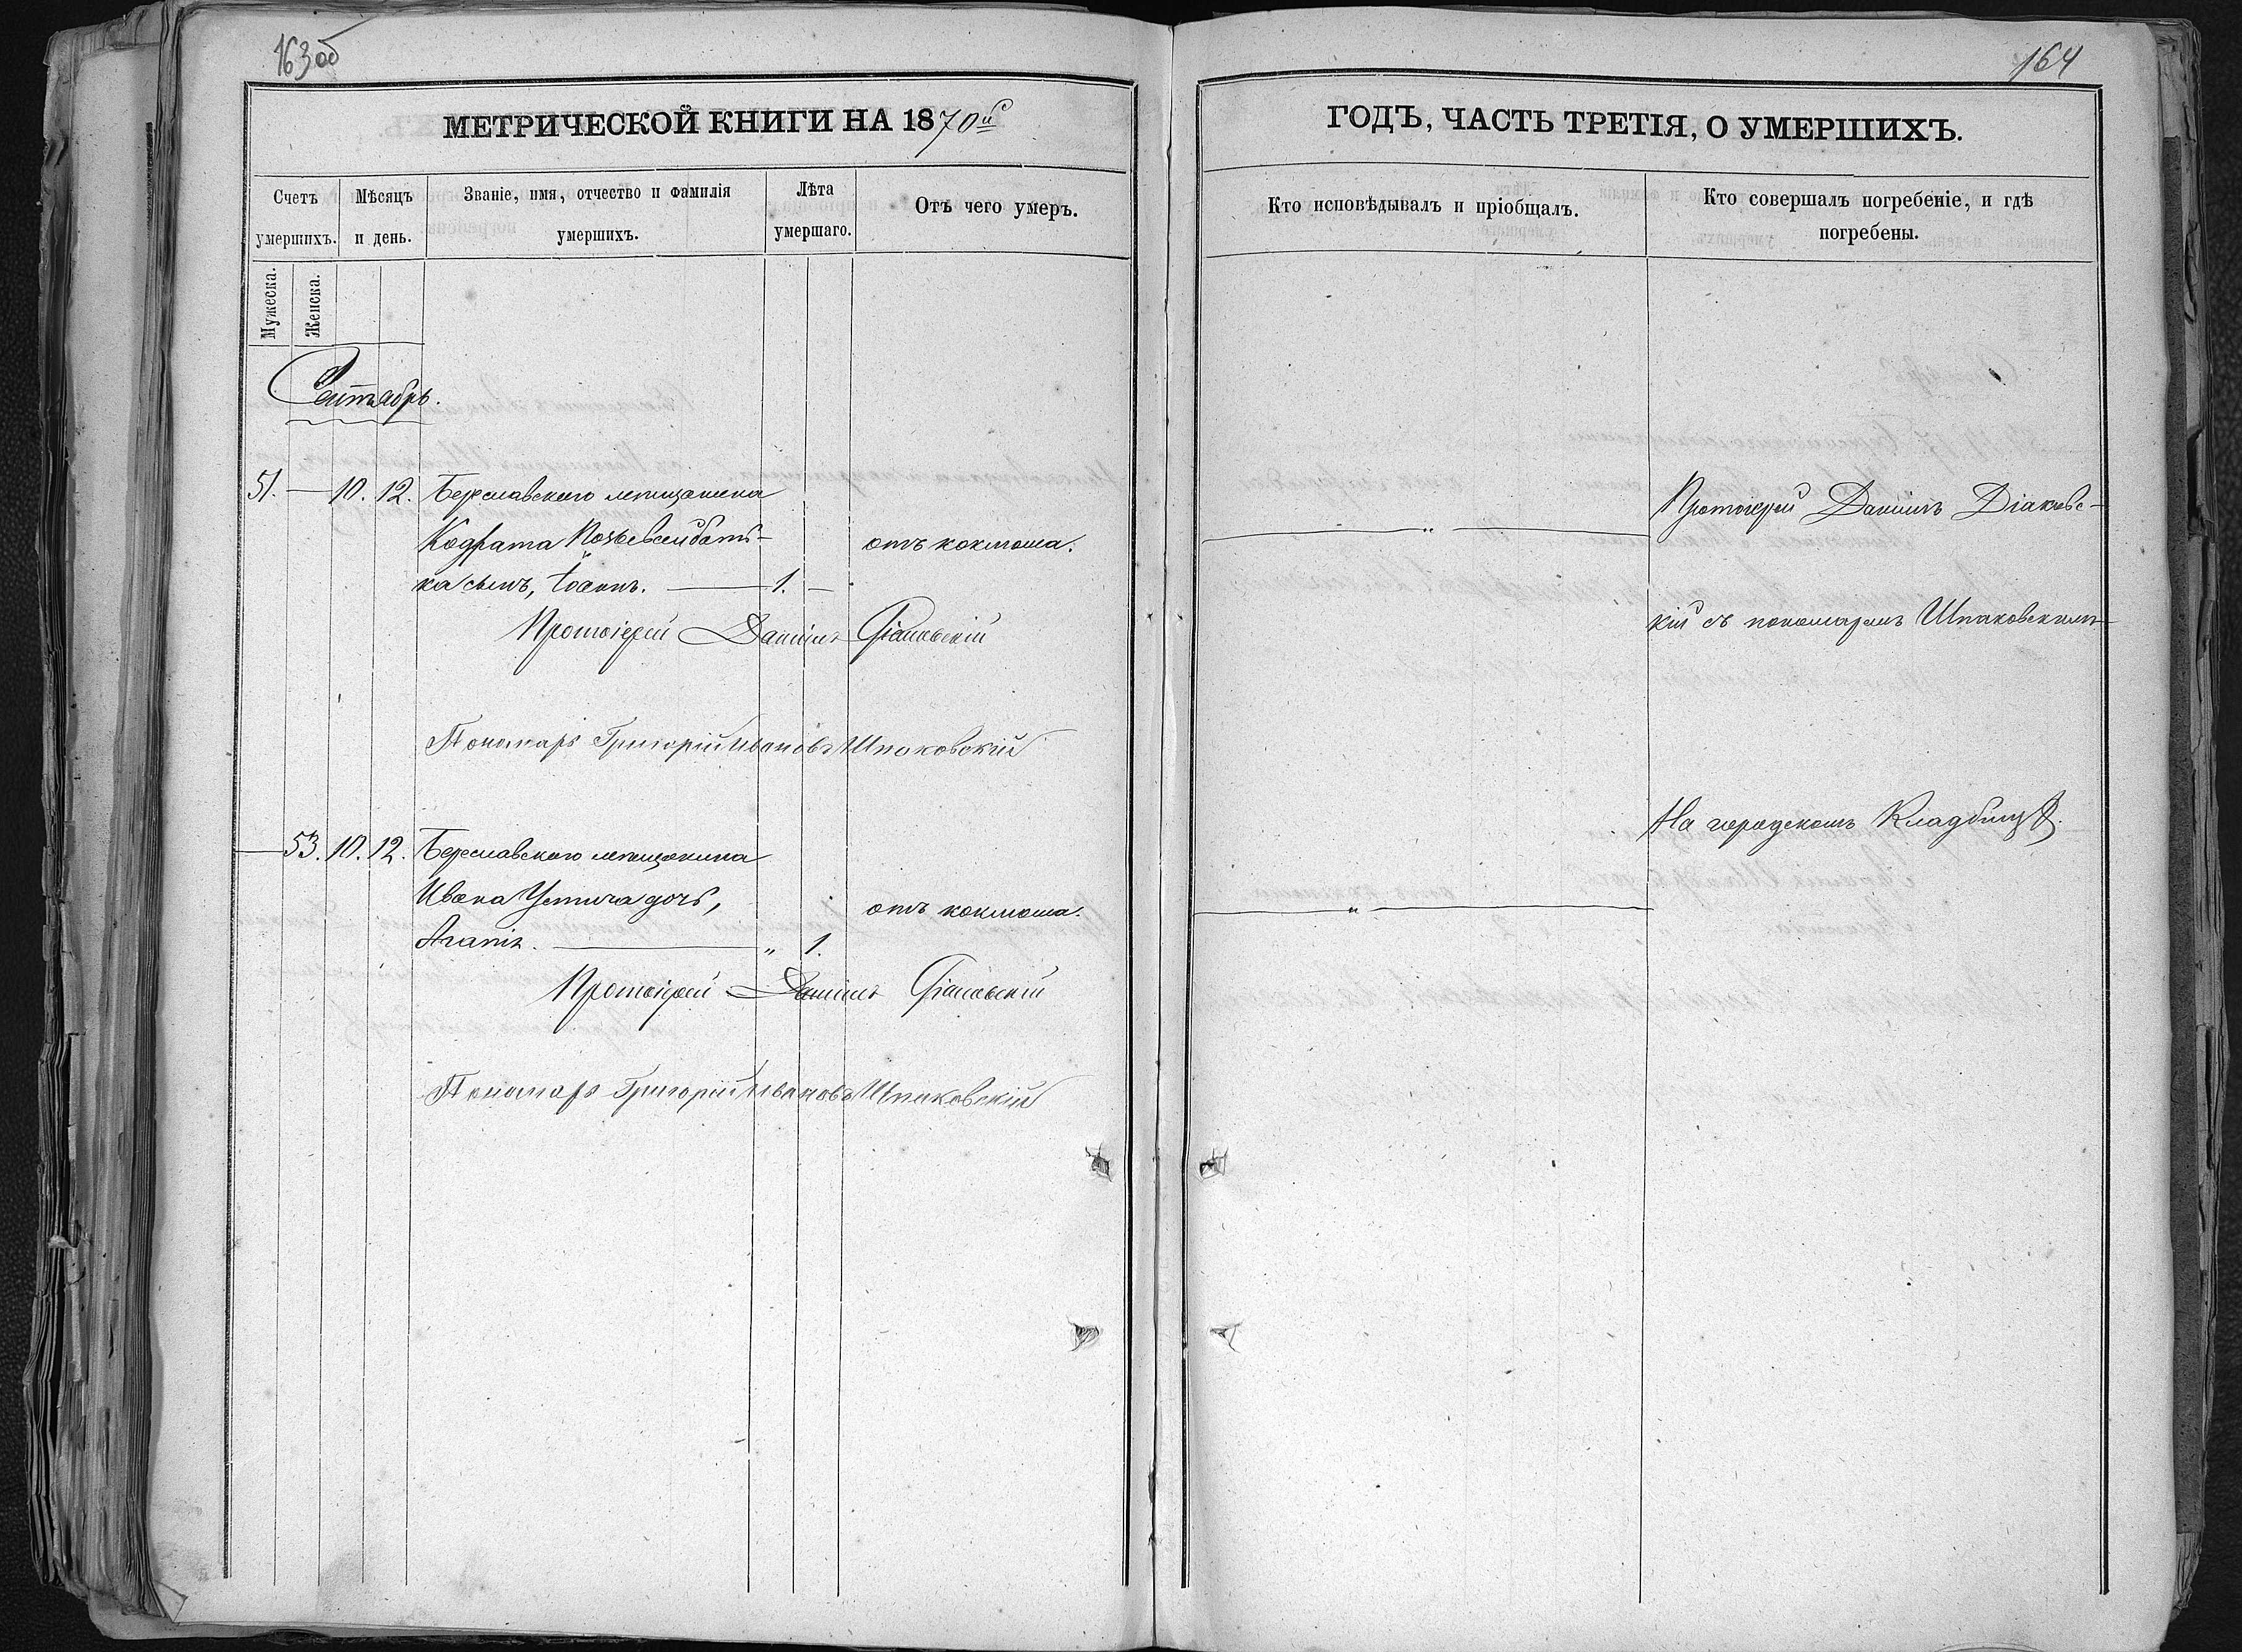 163об
МЕТРИЧЕСКОЙ КНИГИ НА 1870й
Счетъ умершихъ.
Мѣсяцъ и день.
Званіе, имя, отчество и фамилія умершихъ.
Лѣта умершаго.
Отъ чего умеръ.
Мужеска.
Женска.
Сентябрь.
51. — 10. 12. Береславскаго мѣщанина
Кодрата
отъ коклюша.
ка сынъ, Іоаннъ. — 1. —
Протоіерей Даніилъ Діаковскій
Пономарь Григорій Ивановъ Шпаковскій
— 53. 10. 12. Береславскаго мѣщанина
Ивана Устича дочь,
отъ коклюша.
Агапія. — „ 1.
Протоіерей Даніилъ Діаковскій
Пономарь Григорій Ивановъ Шпаковскій
164
ГОДЪ, ЧАСТЬ ТРЕТІЯ, О УМЕРШИХЪ.
Кто исповѣдывалъ и пріобщалъ.
Кто совершалъ погребеніе, и гдѣ
погребены.
Протоіерей Даніилъ Діаковс-
— „ —
кій съ пономаремъ Шпаковскимъ
На городскомъ Кладбищѣ.
— „ —